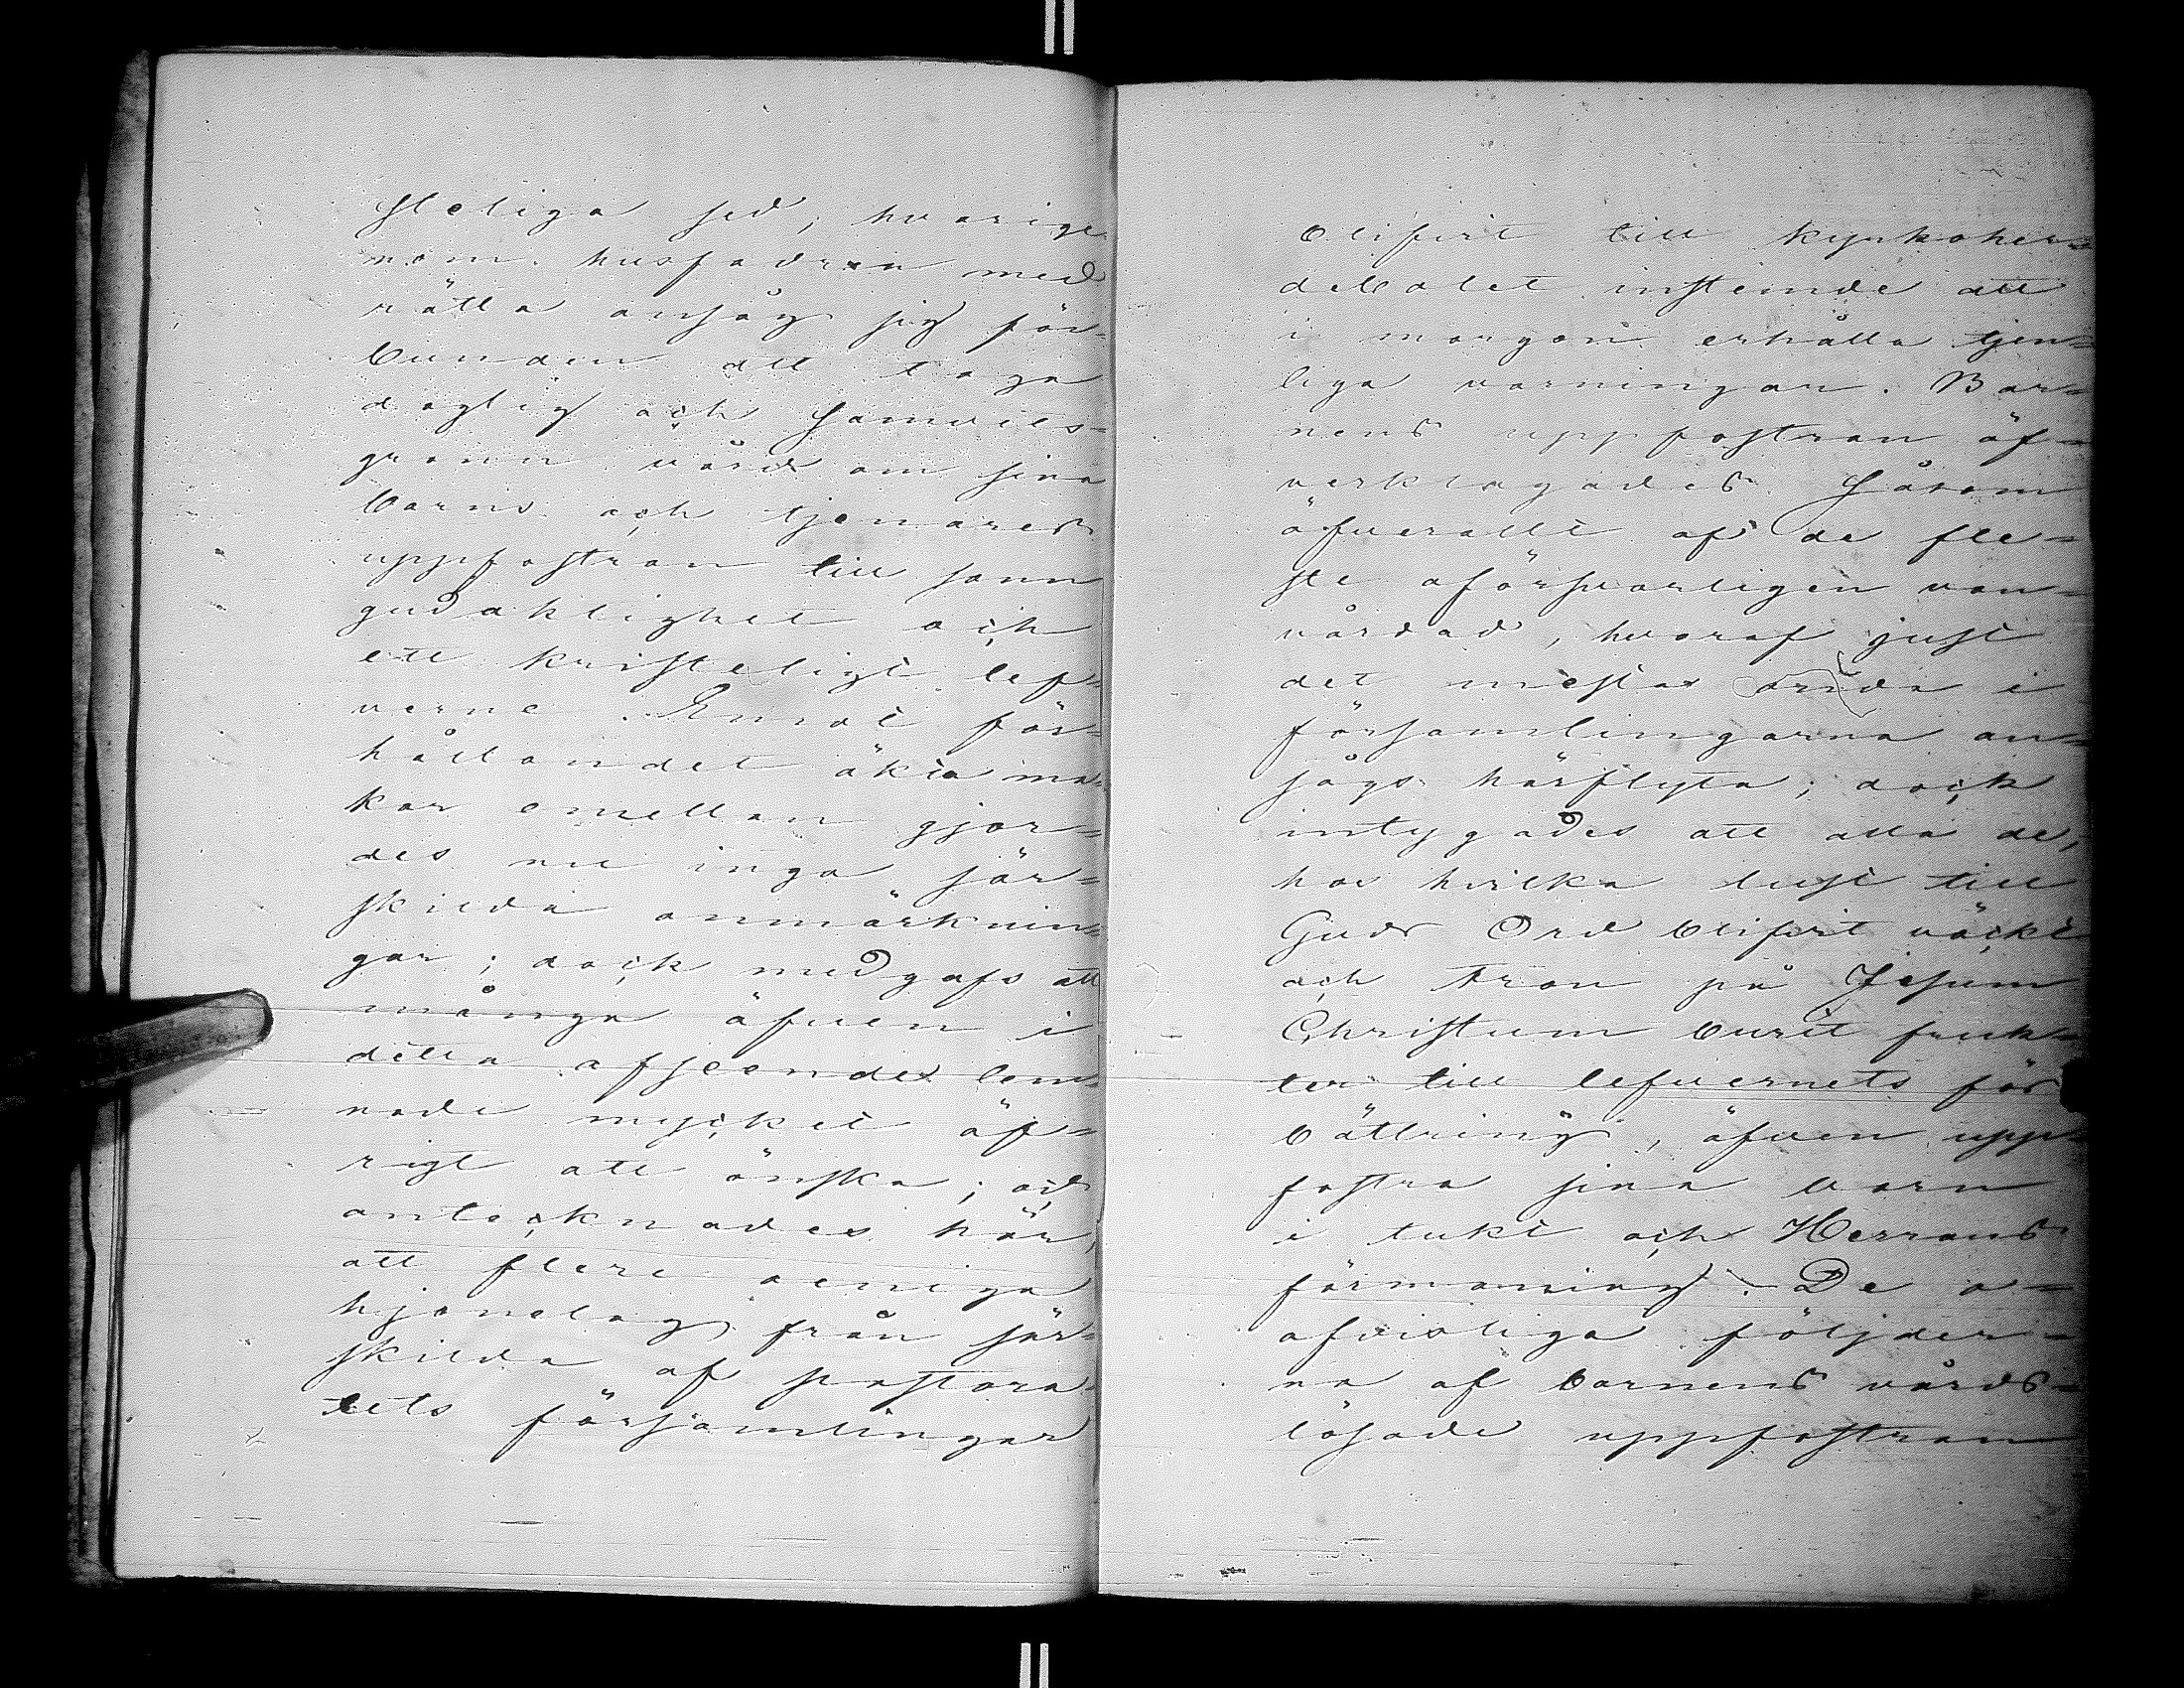 steliga sed, hvarige-
nom husfadren med
rätta ansåg sig för-
bunden att taga
daglig och samvets-
grann vård om sina
barns och tjenares
uppfostran till sann
gudaktighet och
ett kristeligt lef-
verne. Emot för-
hållandet äkta ma-
kar emellan gjor-
des nu inga sär-
skilda anmärknin-
gar; dock medgafs att
många äfven i
detta afseende lem-
nade mycket öf-
rigt att önska; och
antecknades här,
att flere oeniga
hjonelag från sär-
skilda af pastora-
tets församlingar
blifvit till kyrkoher-
debolet instemde att
i morgon erhålla tjen-
liga varningar. Bar-
nens uppfostran öf-
verklagades såsom
öfverallt af de fle-
ste oförsvarligen van-
vårdad, hvaraf just
det mesta onda i
församlingarna an-
sågs härflyta; dock
intygades att alla de,
hos hvilka lust till
Guds Ord blifvit väckt
och tron på Jesum
Christum burit fruk-
ter till lefvernets för
bättring, äfven upp-
fostra sina barn
i tukt och Herrans
förmaning. De o-
afvisliga följder-
na af barnens vårds-
lösade uppfostran